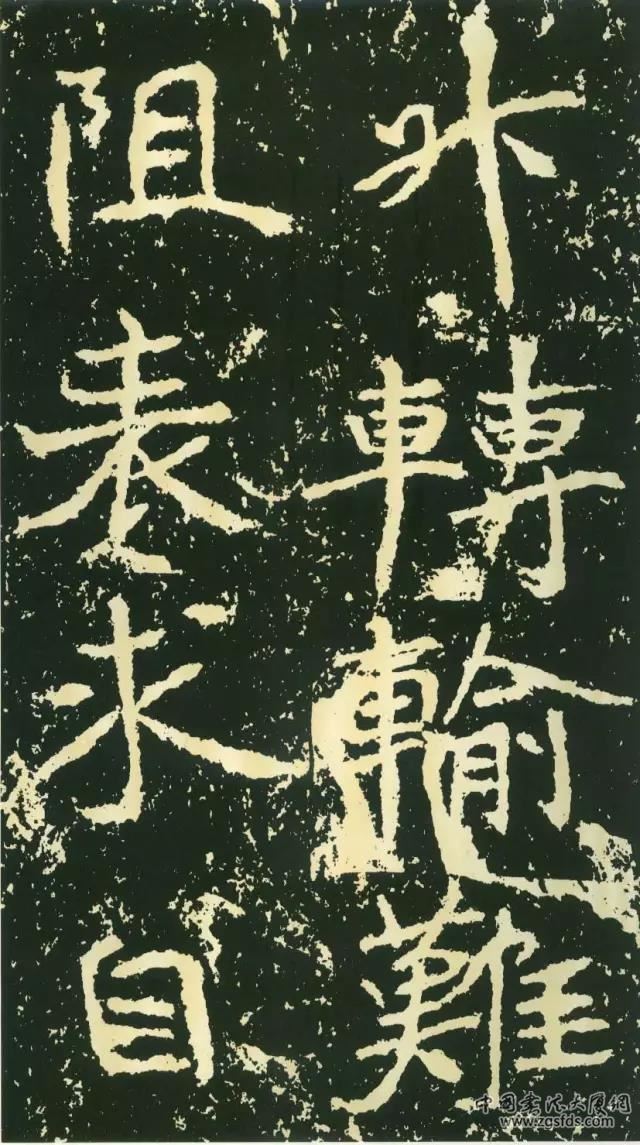 升轉輸難
阻表求自
中国书法大厦网
www.zgsfds.com